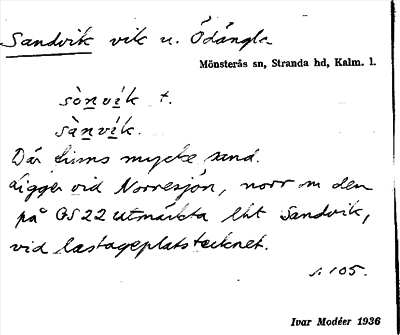 Sandvik vik u. Ödängla
Mönsterås sn, Stranda hd, Kalm. l.
sònvík t.
sànvík.
Där finns mycke sand.
Ligger vid Norresjön, norr om den
på GS 22 utmärkta lht Sandvik,
vid lastageplatstecknet.
s. 105.
Ivar Modéer 1936